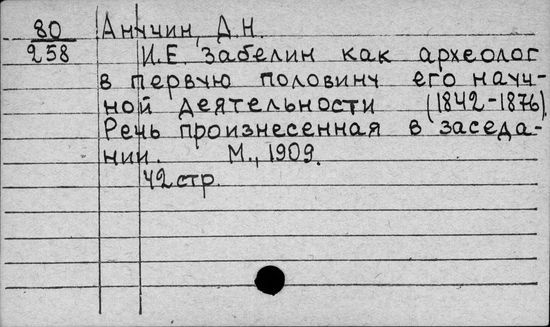 80 Анучин, Д.Н.
258 И.Е. Забелин как археолог
в первую половину его науч-
ной деятельности (1842-1876).
Речь произнесенная в заседа-
нии. М., 1909.
42 стр.